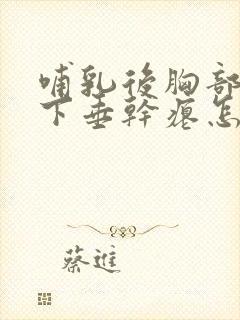 哺乳後胸部
下垂幹瘪怎
蔡進